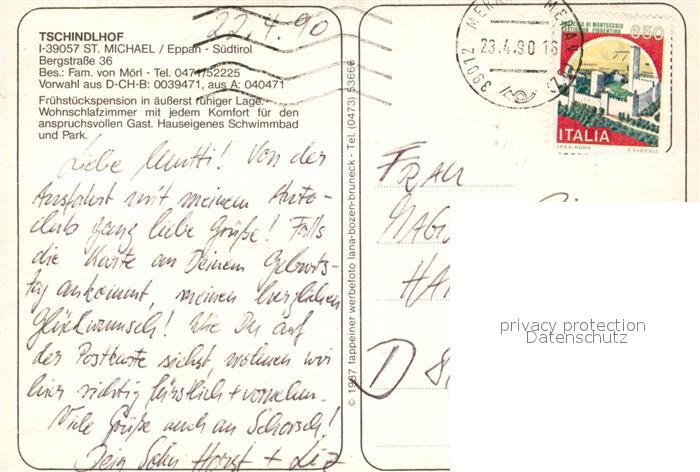 22.4.90
TSCHINDLHOF
I-39057 ST. MICHAEL / Eppan - Südtirol
Bergstraße 36
Bes.: Fam. von Mörl - Tel. 0471/52225
Vorwahl aus D-CH-B: 0039471, aus A: 040471
Frühstückspension in äußerst ruhiger Lage.
Wohnschlafzimmer mit jedem Komfort für den
anspruchsvollen Gast. Hauseigenes Schwimmbad
und Park.
Liebe Mutti! Von der
Ausfahrt mit meinem Auto-
club ganz liebe Grüße! Falls
die Karte an Deinem Geburts-
tag ankommt, meinen herzlichen
Glückwunsch! Wie Du auf
der Postkarte siehst, wohnen wir
hier richtig fürstlich + vornehm.
Viele Grüße auch an Schorsch!
Dein Sohn Horst + Liz
© 1987 tappeiner werbefoto lana-bozen-bruneck - Tel. (0473) 53666
39012 MERANO MERAN
23.4.90 16
MONTECCHIO
FIORENTINO
650
ITALIA
I.P.Z.S.-ROMA
FRAU
HA
D 8
privacy protection
Datenschutz